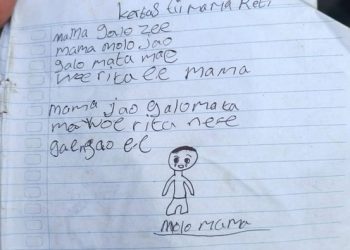 Kertas Tii Mama Reti
mama galo zee
mama molo Jao
galo mata mae
woe rita ee mama
mama jao galo mata
mae woe rita nese
gae ngao ee
molo mama